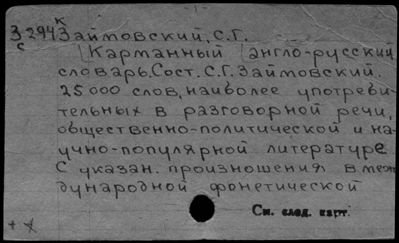 К
3294 Займовский, С.Г.
с
Карманный англо-русский
словарь. Сост. С.Г. Займовский.
25000 слов, наиболее употреби-
тельных в разговорной речи,
общественно-политической и на-
учно-популярной литературе
С указан. произношения в меж-
дународной фонетической
См. след. карт.